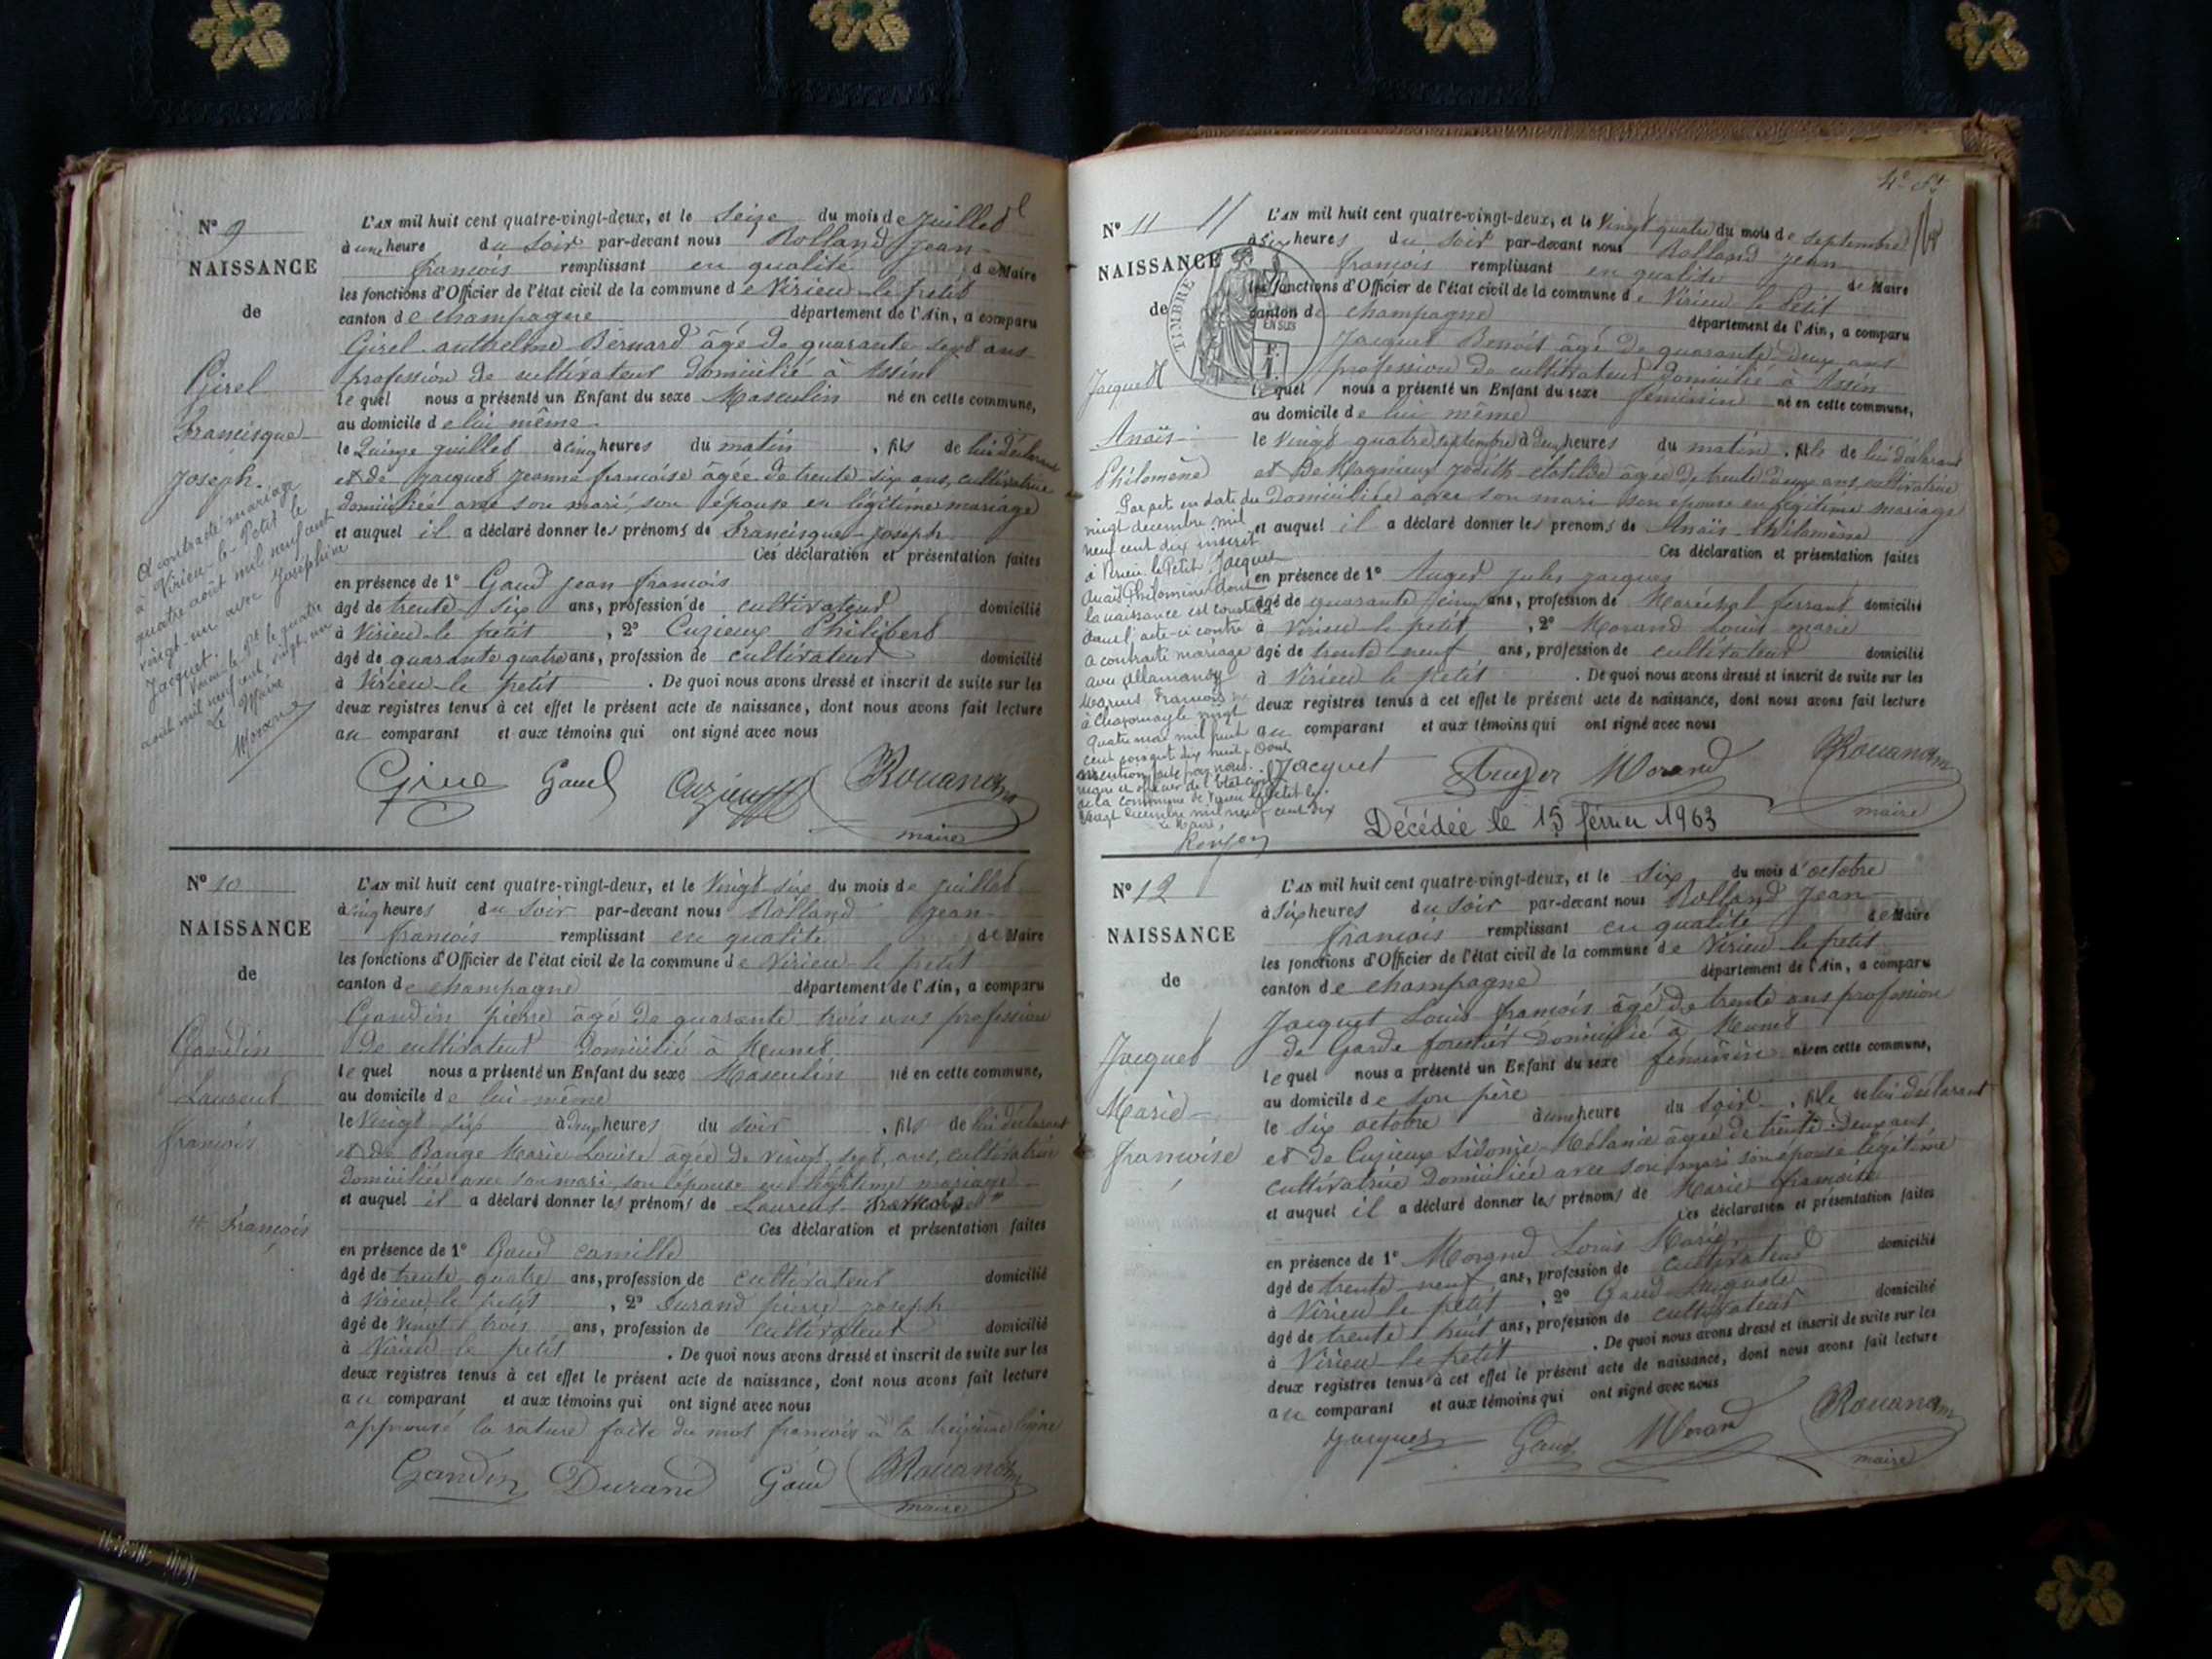 N° 9
NAISSANCE
de
Girel
Francisque
Joseph.
A contracté mariage
à Virieu-le-Petit le
quatre août mil neuf cent
vingt-un avec Joséphine
Jacquet.
Virieu-le-Pt le quatre
août mil neuf cent vingt-un
Le Maire
Morand
L'AN mil huit cent quatre-vingt-deux, et le Seize du mois de juillet
à une heure du Soir par-devant nous Rolland Jean
françois remplissant en qualité de Maire
les fonctions d'Officier de l'état civil de la commune de Virieu-le petit
canton de champagne département de l'Ain, a comparu
Girel anthelme Bernard âgé de quarante-sept ans
profession de cultivateur domicilié à Assin
lequel nous a présenté un Enfant du sexe Masculin né en cette commune,
au domicile de lui même
le Quinze juillet à cinq heures du matin, fils de lui déclarant
et de Jacquet jeanne françoise âgée de trente-six ans, cultivatrice
domiciliée avec son mari, son épouse en légitime mariage
et auquel il a déclaré donner les prénoms de Francisque-Joseph
Ces déclaration et présentation faites
en présence de 1° Gaud jean françois
âgé de trente-six ans, profession de cultivateur domicilié
à Virieu-le petit, 2° Cuzieux Philibert
âgé de quarante quatre ans, profession de cultivateur domicilié
à Virieu-le petit. De quoi nous avons dressé et inscrit de suite sur les
deux registres tenus à cet effet le présent acte de naissance, dont nous avons fait lecture
au comparant et aux témoins qui ont signé avec nous
Gaud Cuzieux
maire
N° 10
NAISSANCE
de
Gandin
Laurent
françois
# François
L'AN mil huit cent quatre-vingt-deux, et le Vingt-six du mois de juillet
à cinq heures du Soir par-devant nous Rolland Jean
françois remplissant en qualité de Maire
les fonctions d'Officier de l'état civil de la commune de Virieu-le petit
canton de champagne département de l'Ain, a comparu
Gandin pierre âgé de quarante trois ans profession
de cultivateur domicilié à Munet
lequel nous a présenté un Enfant du sexe Masculin né en cette commune,
au domicile de lui-même
le Vingt-six à deux heures du soir, fils de lui déclarant
et de Bange Marie Louise âgée de vingt-sept ans, cultivatrice
domiciliée avec son mari, son épouse en légitime mariage
et auquel il a déclaré donner les prénoms de Laurent-
Ces déclaration et présentation faites
en présence de 1° Gaud camille
âgé de trente quatre ans, profession de cultivateur domicilié
à Virieu le petit, 2° Durand pierre joseph
âgé de Vingt trois ans, profession de cultivateur domicilié
à Virieu le petit. De quoi nous avons dressé et inscrit de suite sur les
deux registres tenus à cet effet le présent acte de naissance, dont nous avons fait lecture
au comparant et aux témoins qui ont signé avec nous
approuvé la rature faite du mot françois à la treizième ligne
Gandin Durand Gaud
maire
N° 11 11
NAISSANCE
de
TIMBRE
EN SUS
Jacquet
Anaïs
Philomène
Par acte en date du
vingt décembre mil
neuf cent dix inscrit
à Virieu le Petit Jacquet
Anaïs Philomène dont
la naissance est constatée
dans l'acte-ci contre
a contracté mariage
avec
Marius François
L'AN mil huit cent quatre-vingt-deux, et le Vingt quatre du mois de septembre
à Six heures du Soir par-devant nous Rolland Jean
françois remplissant en qualité de Maire
les fonctions d'Officier de l'état civil de la commune de Virieu le Petit
canton de champagne département de l'Ain, a comparu
Jacquet Benoît âgé de quarante-deux ans
profession de cultivateur domicilié à Assin
lequel nous a présenté un Enfant du sexe féminin né en cette commune,
au domicile de lui même
le Vingt quatre septembre à deux heures du matin, fille de lui déclarant
et de Magnieux Judith-clotilde âgée de trente deux ans, cultivatrice
domiciliée avec son mari son épouse en légitime mariage
et auquel il a déclaré donner les prénoms de Anaïs-Philomène
Ces déclaration et présentation faites
en présence de 1° Auger Jules Jacques
âgé de quarante cinq ans, profession de Maréchal ferrant domicilié
à Virieu le petit, 2° Morand Louis marie
âgé de trente neuf ans, profession de cultivateur domicilié
à Virieu le petit. De quoi nous avons dressé et inscrit de suite sur les
deux registres tenus à cet effet le présent acte de naissance, dont nous avons fait lecture
au comparant et aux témoins qui ont signé avec nous
Jacquet Auger Morand
maire
Décédée le 15 février 1963
N° 12
NAISSANCE
de
Jacquet
Marie
françoise
L'AN mil huit cent quatre-vingt-deux, et le Six du mois d'octobre
à Six heures du Soir par-devant nous Rolland Jean
françois remplissant en qualité de Maire
les fonctions d'Officier de l'état civil de la commune de Virieu le petit
canton de champagne département de l'Ain, a comparu
Jacquet Louis françois âgé de trente ans profession
de Garde forestier domicilié à Munet
lequel nous a présenté un Enfant du sexe féminin né en cette commune,
au domicile de son père
le Six octobre à une heure du soir, fille de lui déclarant
et de Cuzieux Sidonie-Mélanie âgée de trente-deux ans
cultivatrice domiciliée avec son mari son épouse légitime
et auquel il a déclaré donner les prénoms de Marie françoise
Ces déclaration et présentation faites
en présence de 1° Morand Louis Marie
âgé de trente-neuf ans, profession de cultivateur domicilié
à Virieu le petit, 2° Gaud Auguste
âgé de trente huit ans, profession de cultivateur domicilié
à Virieu-le petit. De quoi nous avons dressé et inscrit de suite sur les
deux registres tenus à cet effet le présent acte de naissance, dont nous avons fait lecture
au comparant et aux témoins qui ont signé avec nous
Jacquet Gaud Morand
maire